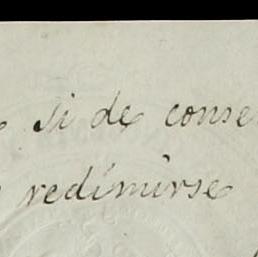 si de conse
redimirse